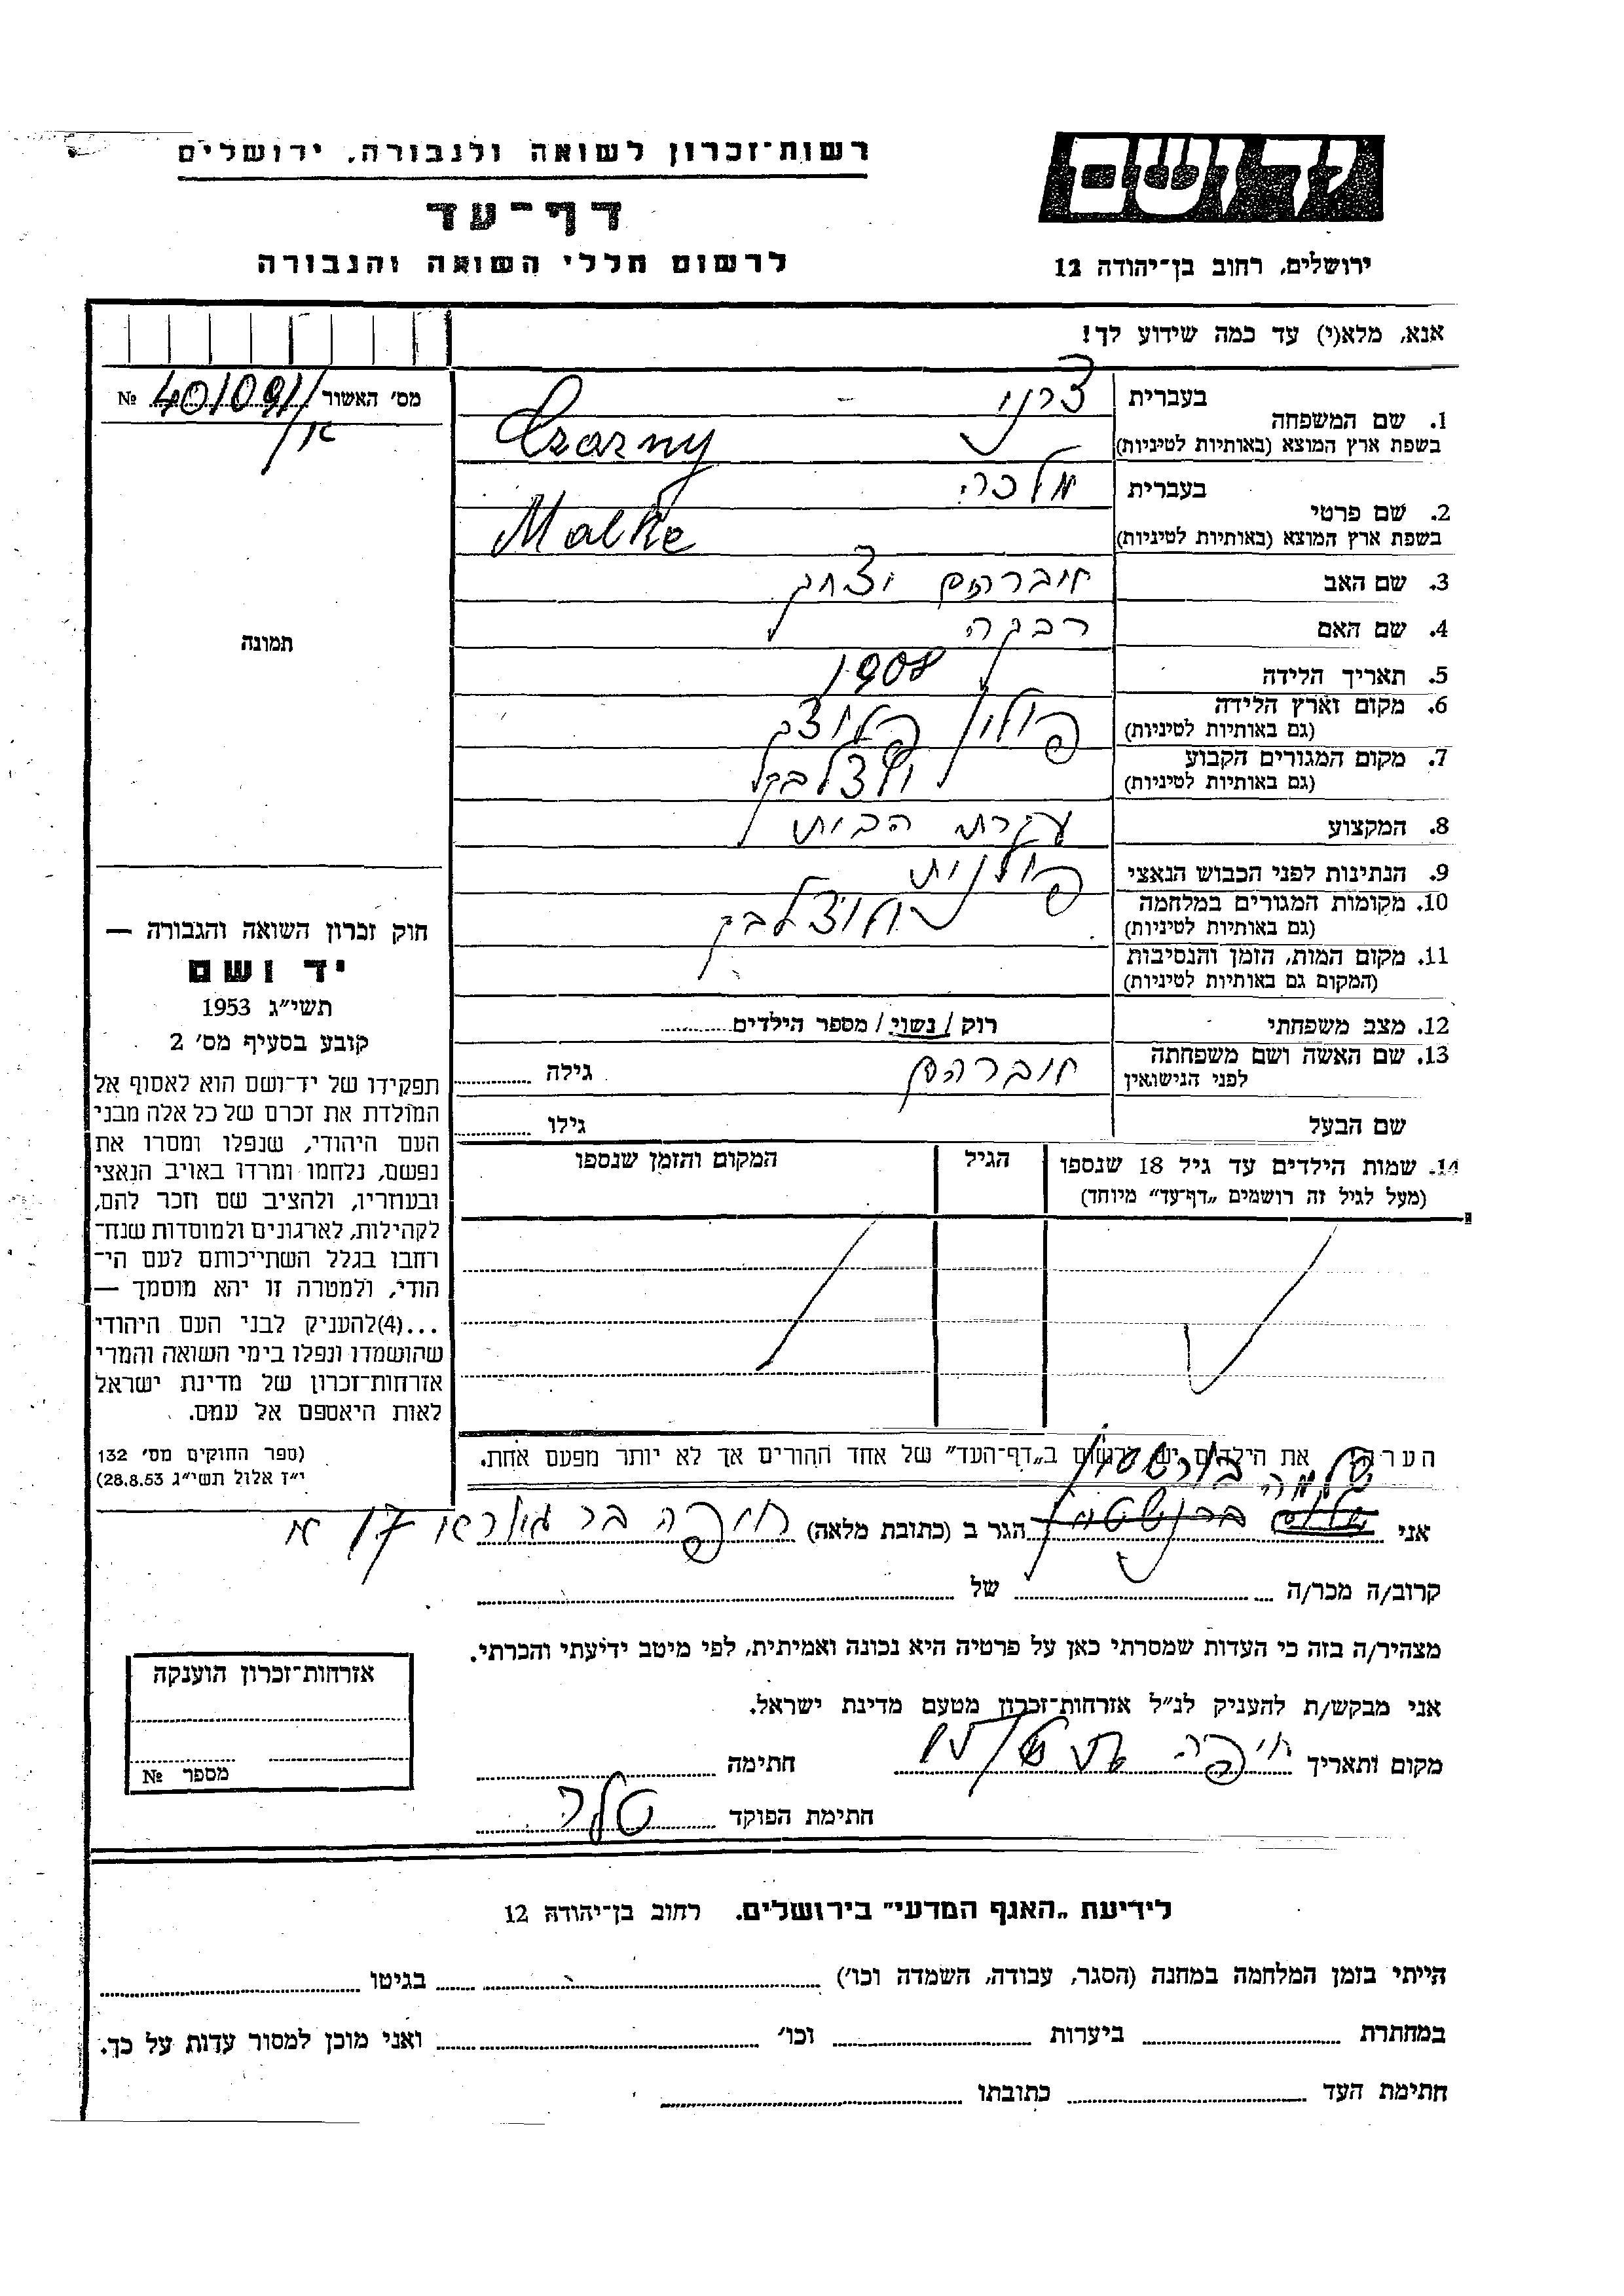 רשות־זכרון לשואה ולגבורה, ירושלים
דף־עד
לרשום חללי השואה והגבורה
יד ושם
ירושלים, רחוב בן־יהודה 12
אנא, מלא(י) עד כמה שידוע לך!
מס׳ האשור № 401091/א
תמונה
1. שם המשפחה בעברית צרני
בשפת ארץ המוצא (באותיות לטיניות) Czarny
2. שם פרטי בעברית מלכה
בשפת ארץ המוצא (באותיות לטיניות) Malke
3. שם האב אברהם יצחק
4. שם האם רבקה
5. תאריך הלידה 1908
6. מקום וארץ הלידה פולין פלוצק
(גם באותיות לטיניות)
7. מקום המגורים הקבוע
(גם באותיות לטיניות)
8. המקצוע עקרת הבית
9. הנתינות לפני הכבוש הנאצי פולנית
10. מקומות המגורים במלחמה
(גם באותיות לטיניות)
11. מקום המות, הזמן והנסיבות
(המקום גם באותיות לטיניות)
12. מצב משפחתי רוק / נשוי / מספר הילדים
13. שם האשה ושם משפחתה אברהם גילה
לפני הנישואין
שם הבעל גילו
14. שמות הילדים עד גיל 18 שנספו הגיל המקום והזמן שנספו
(מעל לגיל זה רושמים „דף־עד״ מיוחד)
חוק זכרון השואה והגבורה —
יד ושם
תשי״ג 1953
קובע בסעיף מס׳ 2
תפקידו של יד־ושם הוא לאסוף אל
המולדת את זכרם של כל אלה מבני
העם היהודי, שנפלו ומסרו את
נפשם, נלחמו ומרדו באויב הנאצי
ובעוזריו, ולהציב שם וזכר להם,
לקהילות, לארגונים ולמוסדות שנח־
רחבו בגלל השתייכותם לעם הי־
הודי, ולמטרה זו יהא מוסמך —
...(4) להעניק לבני העם היהודי
שהושמדו ונפלו בימי השואה והמרי
אזרחות־זכרון של מדינת ישראל
לאות היאספם אל עמם.
(ספר החוקים מס׳ 132
י״ז אלול תשי״ג 28.8.53)
הערה את הילדים יש לרשום ב„דף־העד״ של אחד ההורים אך לא יותר מפעם אחת.
שלמה בורשטין
אני הגר ב (כתובת מלאה) חיפה בר גיורא 17 א
קרוב/ה מכר/ה של
מצהיר/ה בזה כי העדות שמסרתי כאן על פרטיה היא נכונה ואמיתית, לפי מיטב ידיעתי והכרתי.
אני מבקש/ת להעניק לנ״ל אזרחות־זכרון מטעם מדינת ישראל.
מקום ותאריך חיפה חתימה
חתימת הפוקד
אזרחות־זכרון הוענקה
מספר №
לידיעת „האגף המדעי״ בירושלים. רחוב בן־יהודה 12
הייתי בזמן המלחמה במחנה (הסגר, עבודה, השמדה וכו׳) בגיטו
במחתרת ביערות וכו׳ ואני מוכן למסור עדות על כך.
חתימת העד כתובתו